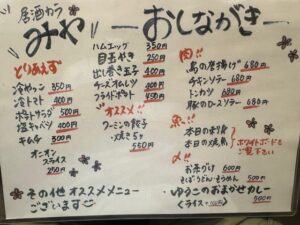 居酒カラ
みや
おしながき
とりあえず
冷やっこ 350円
冷トマト 400円
ポテトサラダ 500円
塩キャベツ 400円
キムチ 300円
オニオン
スライス
250円
ハムエッグ 350円
目玉やき 250円
出し巻き玉子 400円
チーズオムレツ 400円
フライドポテト 450円
オススメ!!
ラーミンの餃子
・焼き5ヶ
550円
肉!!
鳥の唐揚げ 680円
チキンソテー 680円
トンカツ 680円
豚のロースソテー 680円
魚!!
本日のお刺身
本日の焼魚
ホワイトボードも
ご覧下さい
〆!!
お茶づけ 600円
そば・うどん・そうめん 500円
ゆうこのおまかせカレー
(ライス 付) 500円
その他 オススメメニュー
ございます